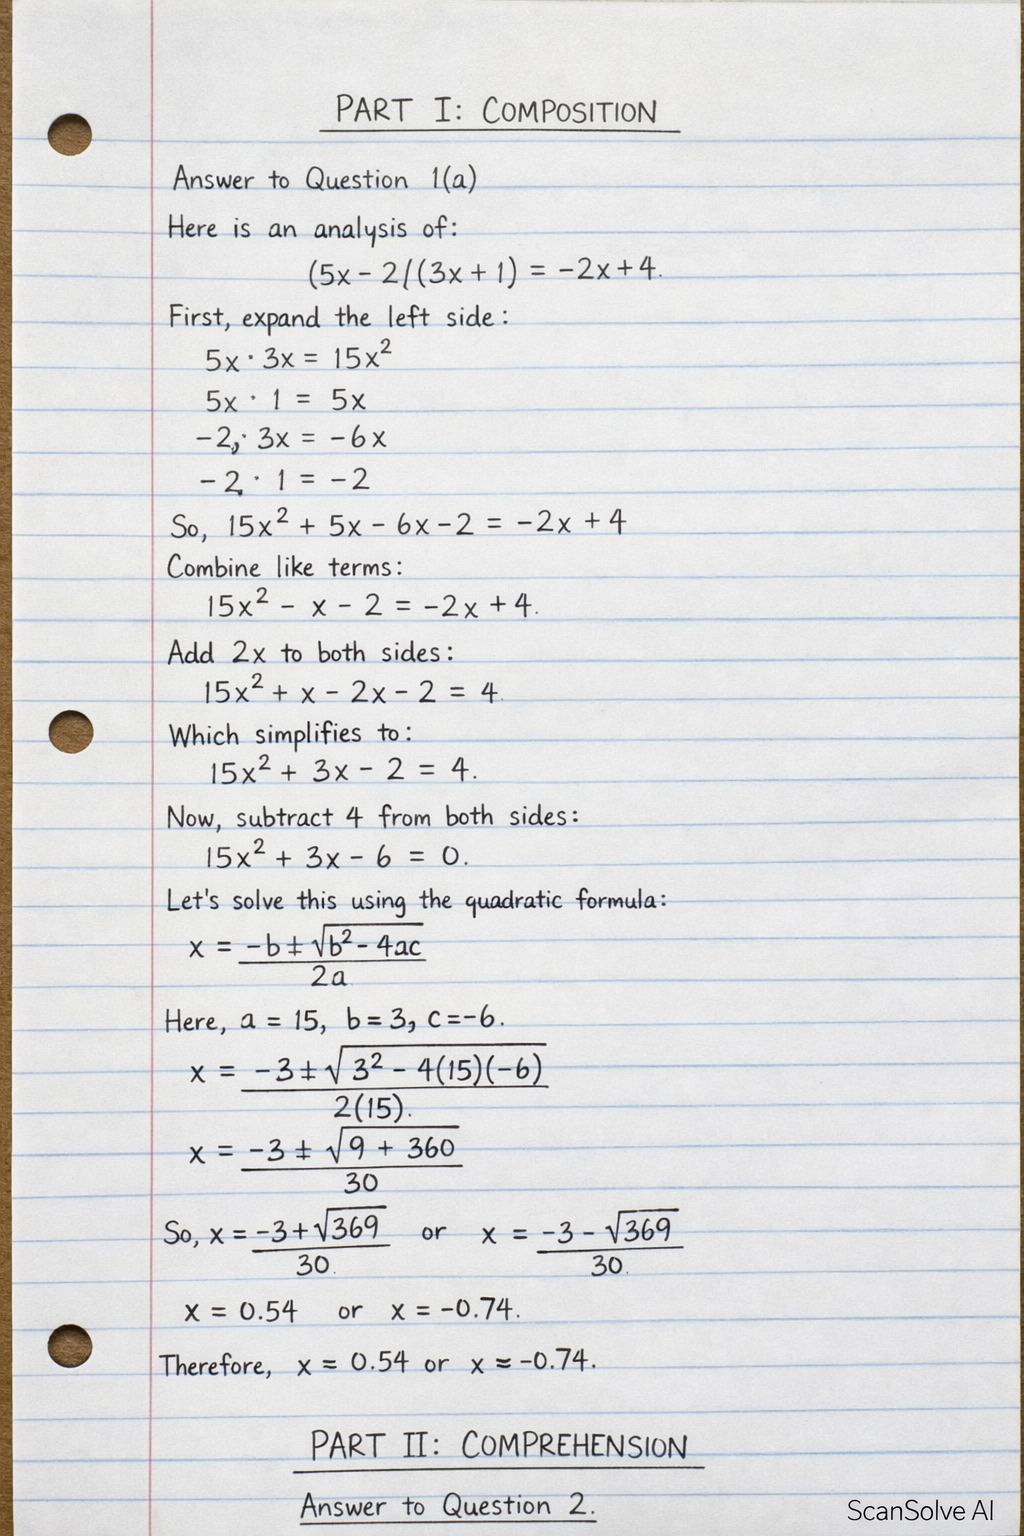 PART I: COMPOSITION
Answer to Question 1(a)
Here is an analysis of:
(5x - 2/(3x + 1) = -2x + 4.
First, expand the left side:
5x · 3x = 15x²
5x · 1 = 5x
-2,· 3x = -6x
-2 · 1 = -2
So, 15x² + 5x - 6x - 2 = -2x + 4
Combine like terms:
15x² - x - 2 = -2x + 4.
Add 2x to both sides:
15x² + x - 2x - 2 = 4.
Which simplifies to:
15x² + 3x - 2 = 4.
Now, subtract 4 from both sides:
15x² + 3x - 6 = 0.
Let's solve this using the quadratic formula:
x = -b ± √b² - 4ac
2a
Here, a = 15, b = 3, c = -6.
x = -3 ± √3² - 4(15)(-6)
2(15).
x = -3 ± √9 + 360
30
So, x = -3 + √369 or x = -3 - √369
30. 30.
x = 0.54 or x = -0.74.
Therefore, x ≈ 0.54 or x ≈ -0.74.
PART II: COMPREHENSION
Answer to Question 2.
ScanSolve AI